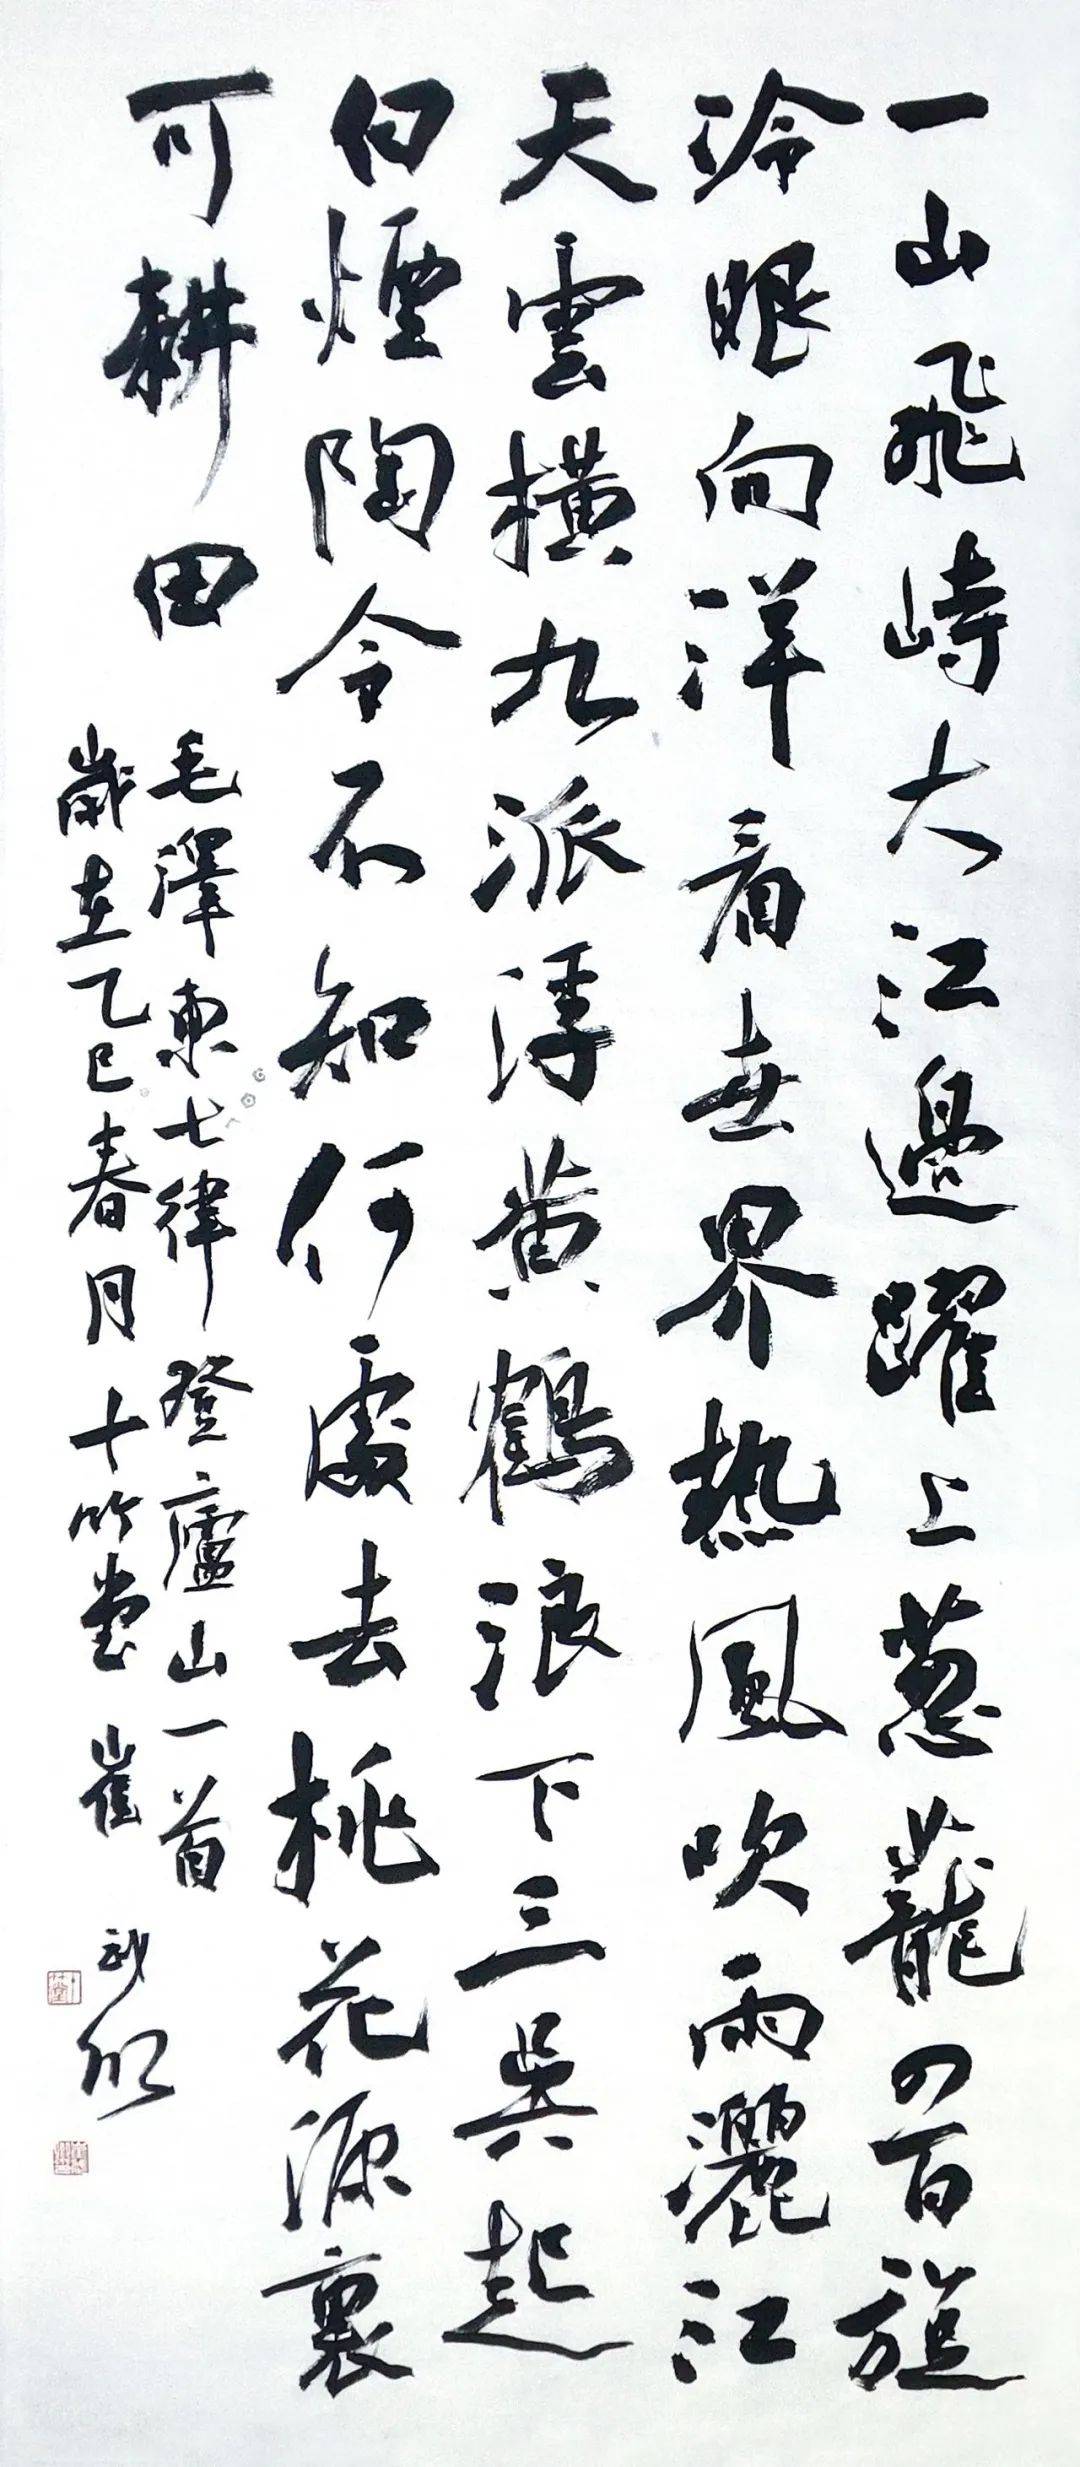 一山飛峙大江邊躍上葱蘢四百旋
冷眼向洋看世界热風吹雨灑江
天雲横九派浮黄鶴浪下三吳起
白煙陶令不知何處去桃花源裏
可耕田
毛澤東七律登廬山一首
歲在乙巳春月十竹堂崔